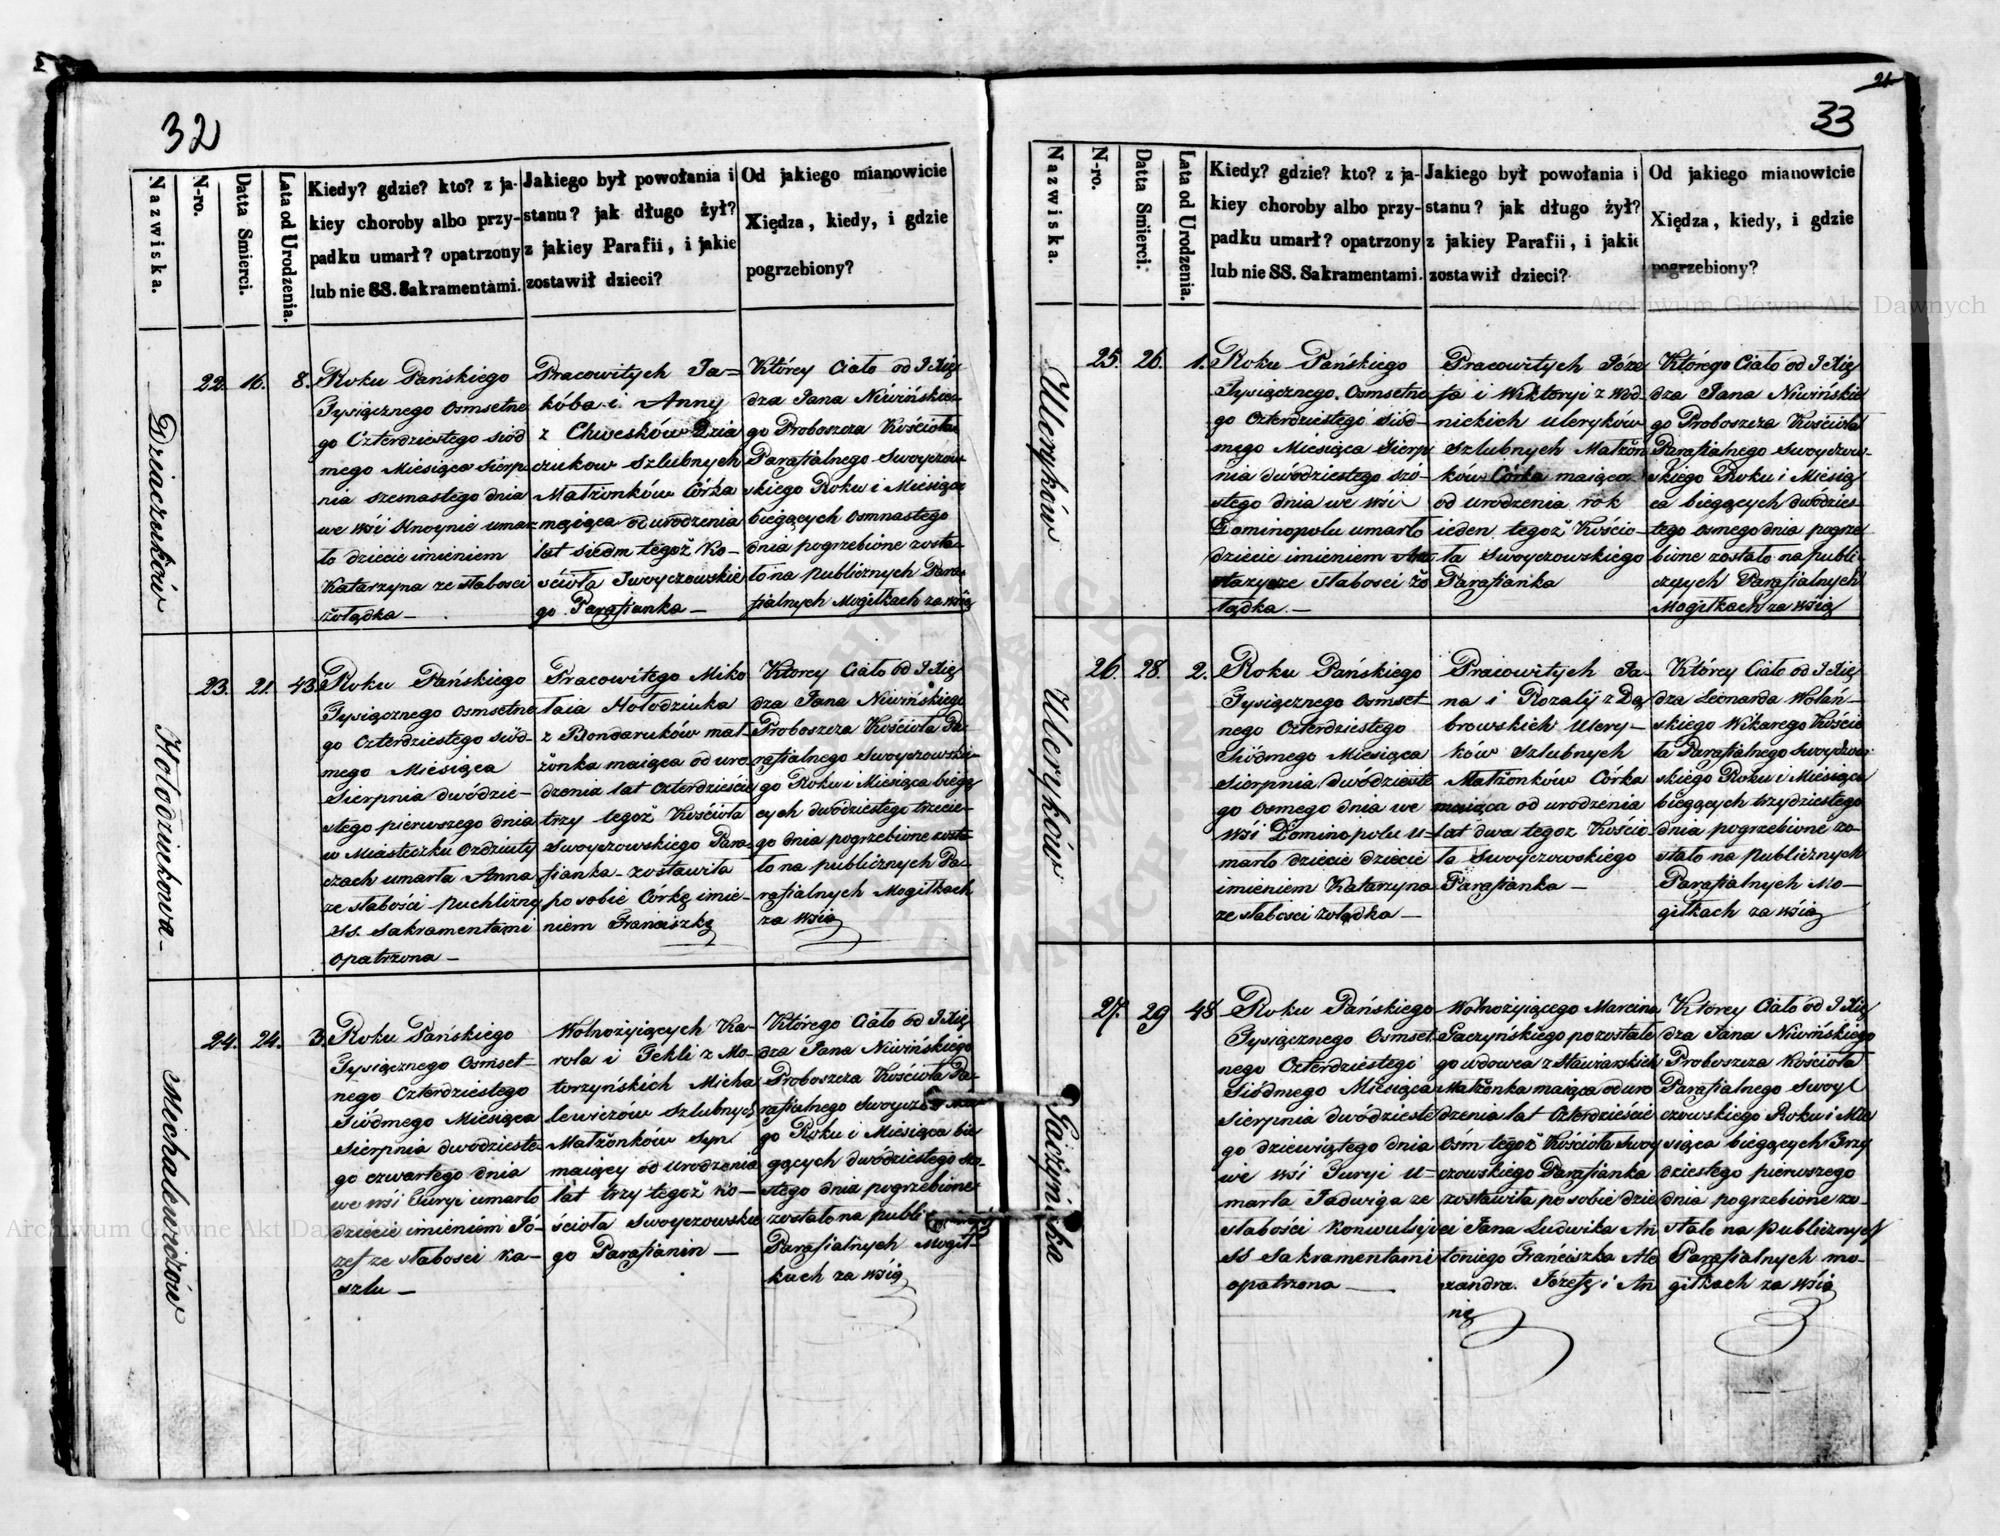 32
Nazwiska.
N-ro.
Datta Smierci.
Lata od Urodzenia.
Kiedy? gdzie? kto? z ja-
kiey choroby albo przy-
padku umarł? opatrzony
lub nie SS. Sakramentami.
Jakiego był powołania i
stanu? jak długo żył?
z jakiey Parafii, i jakie
zostawił dzieci?
Od jakiego mianowicie
Xiędza, kiedy, i gdzie
pogrzebiony?
Dziaczuków
22.
16.
8.
Roku Pańskiego
Tysiącznego Osmsetne
go Czterdziestego siód
mego Miesiąca Sierp
nia szesnastego dnia
we wsi Unoynie umar
ło dziecie imieniem
Katarzyna ze słabosci
żołądka —
Pracowitych Ja=
kóba i Anny
z Chwesków Dzia
czukow Szlubnych
Małżonków Córka
maiąca od urodzenia
lat siedm tegoż Ko-
ścioła Swoyczowskie
go Parafianka —
Którey Ciało od J Xię
dza Jana Niwińskie-
go Proboszcza Kościoła
Parafialnego Swoyczow
skiego Roku i Miesiąca
biegących osmnastego
dnia pogrzebione zosta-
ło na publicznych Para-
fialnych Mogiłkach za wsią
Hołodziukowa -
23.
21.
43.
Roku Pańskiego
Tysiącznego Osmsetne
go Czterdziestego siód-
mego Miesiąca
Sierpnia dwódzie-
stego pierwszego dnia
w Miasteczku Ozdziuty
czach umarła Anna
ze słabosci puchliny
SS. Sakramentami
opatrzona —
Pracowitego Miko
łaia Hołodziuka
z Bondaruków mał-
żonka maiąca od uro
dzenia lat Czterdzieści
trzy tegoż Kościoła
Swoyczowskiego Para-
fianka - zostawiła
po sobie Córkę imie-
niem Franciszkę
Ktorey Ciało od J Xię
dza Jana Niwińskiego
Proboszcza Kościoła Pa-
rafialnego Swoyczowskie
go Roku i Miesiąca biegą
cych dwódziestego trzecie-
go dnia pogrzebione zosta
ło na publicznych Pa-
rafialnych Mogiłkach
za wsią
Michalewiczów
24.
24.
3.
Roku Pańskiego
Tysiącznego Osmset-
nego Czterdziestego
Siódmego Miesiąca
Sierpnia dwodzieste-
go czwartego dnia
we wsi Turyi umarło
dziecie imieniem Jó-
zef ze słabosci ka-
szlu —
Wolnożyjących Ka-
rola i Tekli z Mo-
torzyńskich Micha
lewiczów szlubnych
Małżonków Syn
maiący od urodzenia
lat trzy tegoż Ko-
ścioła Swoyczowskie
go Parafianin —
Którego Ciało od J Xię
dza Jana Niwińskiego
Proboszcza Kościoła Pa-
rafialnego
go Roku i Miesiąca bie
gących dwódziestego szo-
stego dnia pogrzebione
zostało na
Parafialnych Mogił-
kach za wsią
21
33
Nazwiska.
N-ro.
Datta Smierci.
Lata od Urodzenia.
Kiedy? gdzie? kto? z ja-
kiey choroby albo przy-
padku umarł? opatrzony
lub nie SS. Sakramentami.
Jakiego był powołania i
stanu? jak długo żył?
z jakiey Parafii, i jakie
zostawił dzieci?
Od jakiego mianowicie
Xiędza, kiedy, i gdzie
pogrzebiony?
Uleryków
25.
26.
1.
Roku Pańskiego
Tysiącznego Osmsetne
go Czterdziestego siód-
mego Miesiąca Sierp
nia dwódziestego szó-
stego dnia we wsi
Dominopolu umarło
dziecie imieniem
ze słabosci żo
łądka. —
Pracowitych Józe
fa i Wiktoryi z Wod-
nickich Uleryków
Szlubnych Małżon
ków Córka maiąca
od urodzenia rok
ieden tegoż Kościo-
ła Swoyczowskiego
Parafianka
Którego Ciało od J Xię
dza Jana Niwińskie
go Proboszcza Kościoła
Parafialnego Swoyczow-
skiego Roku i Miesią
ca biegących dwódzies-
tego osmego dnia pogrze
bione zostało na publi-
cznych Parafialnych
Mogiłkach za wsią
Uleryków
26.
28.
2.
Roku Pańskiego
Tysiącznego Osmset-
nego Czterdziestego
Siódmego Miesiąca
Sierpnia dwódzieste
go osmego dnia we
wsi Dominopolu u=
marło dziecie dziecie
imieniem Katarzyna
ze słabosci żołądka —
Pracowitych Ja-
na i Rozalÿ z Dą
browskich Ulery-
ków Szlubnych
Małżonków Córka
maiąca od urodzenia
lat dwa tegoż Kościo
ła Swoyczowskiego
Parafianka —
Którey Ciało od J Xię
dza Leonarda Wolań-
skiego Wikarego Kościo
ła Parafialnego Swoyczow
skiego Roku i Miesiąca
biegących trzydziestego
dnia pogrzebione zo-
stało na publicznych
Parafialnych Mo-
giłkach za wsią
Gaczyńska
27.
29
48
Roku Pańskiego
Tysiącznego Osmset
nego Czterdziestego
Siódmego Miesiąca
Sierpnia dwódzieste
go dziewiątego dnia
we wsi Turyi u=
marła Jadwiga ze
słabości konwulsyi
SS Sakramentami
opatrzona —
Wolnożyjącego Marcina
Gaczyńskiego pozostałe
go wdowca z
Małżonka maiąca od uro
dzenia lat Czterdzieści
Osm tegoż Kościoła Swoy
czowskiego Parafianka
zostawiła po sobie dzie
ci Jana Ludwika An
toniego Franciszka Ale
xandra. Józefę i An
nę
Ktorey Ciało od J Xię
dza Jana Niwińskiego
Proboszcza Kościoła
Parafialnego Swoy
czowskiego Roku i Mie
siąca biegących trzy
dziestego pierwszego
dnia pogrzebione zo-
stało na publicznych
Parafialnych mo-
giłkach za wsią
Archiwum Główne Akt Dawnych
Archiwum Główne Akt Dawnych